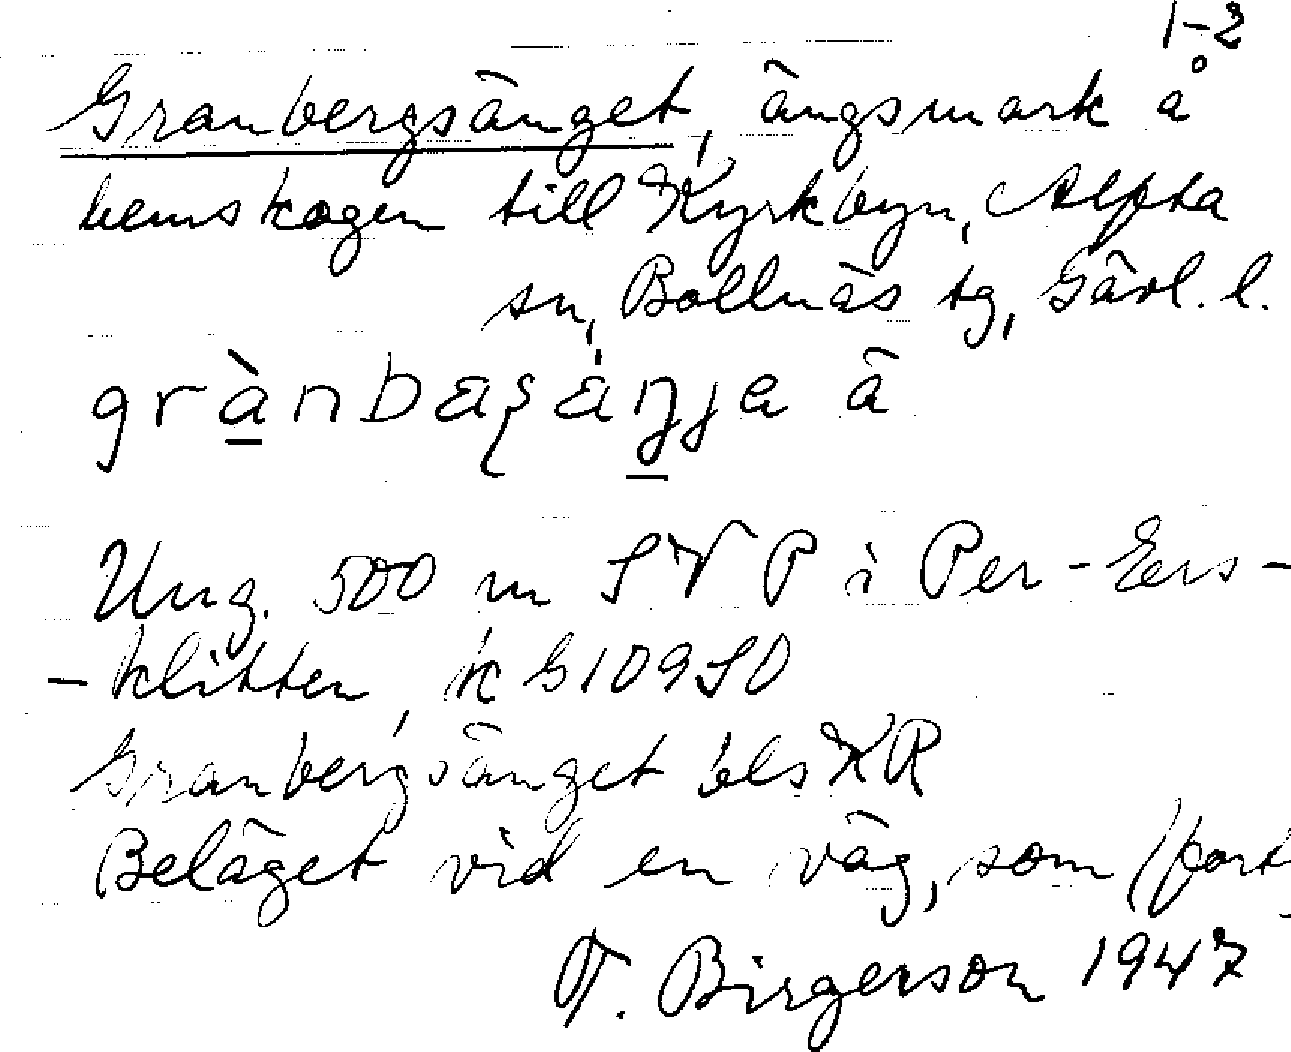 1-2
Granbergsänget, ängsmark å
hemskogen till Kyrkbyn, Alfta
sn, Bollnäs tg, Gävl. l.
Ung. 500 m SV P i Per-Ers-
-klitten, k G109SO
Granbergsänget bls KR
Beläget vid en väg, som (fort
T. Birgerson 1947